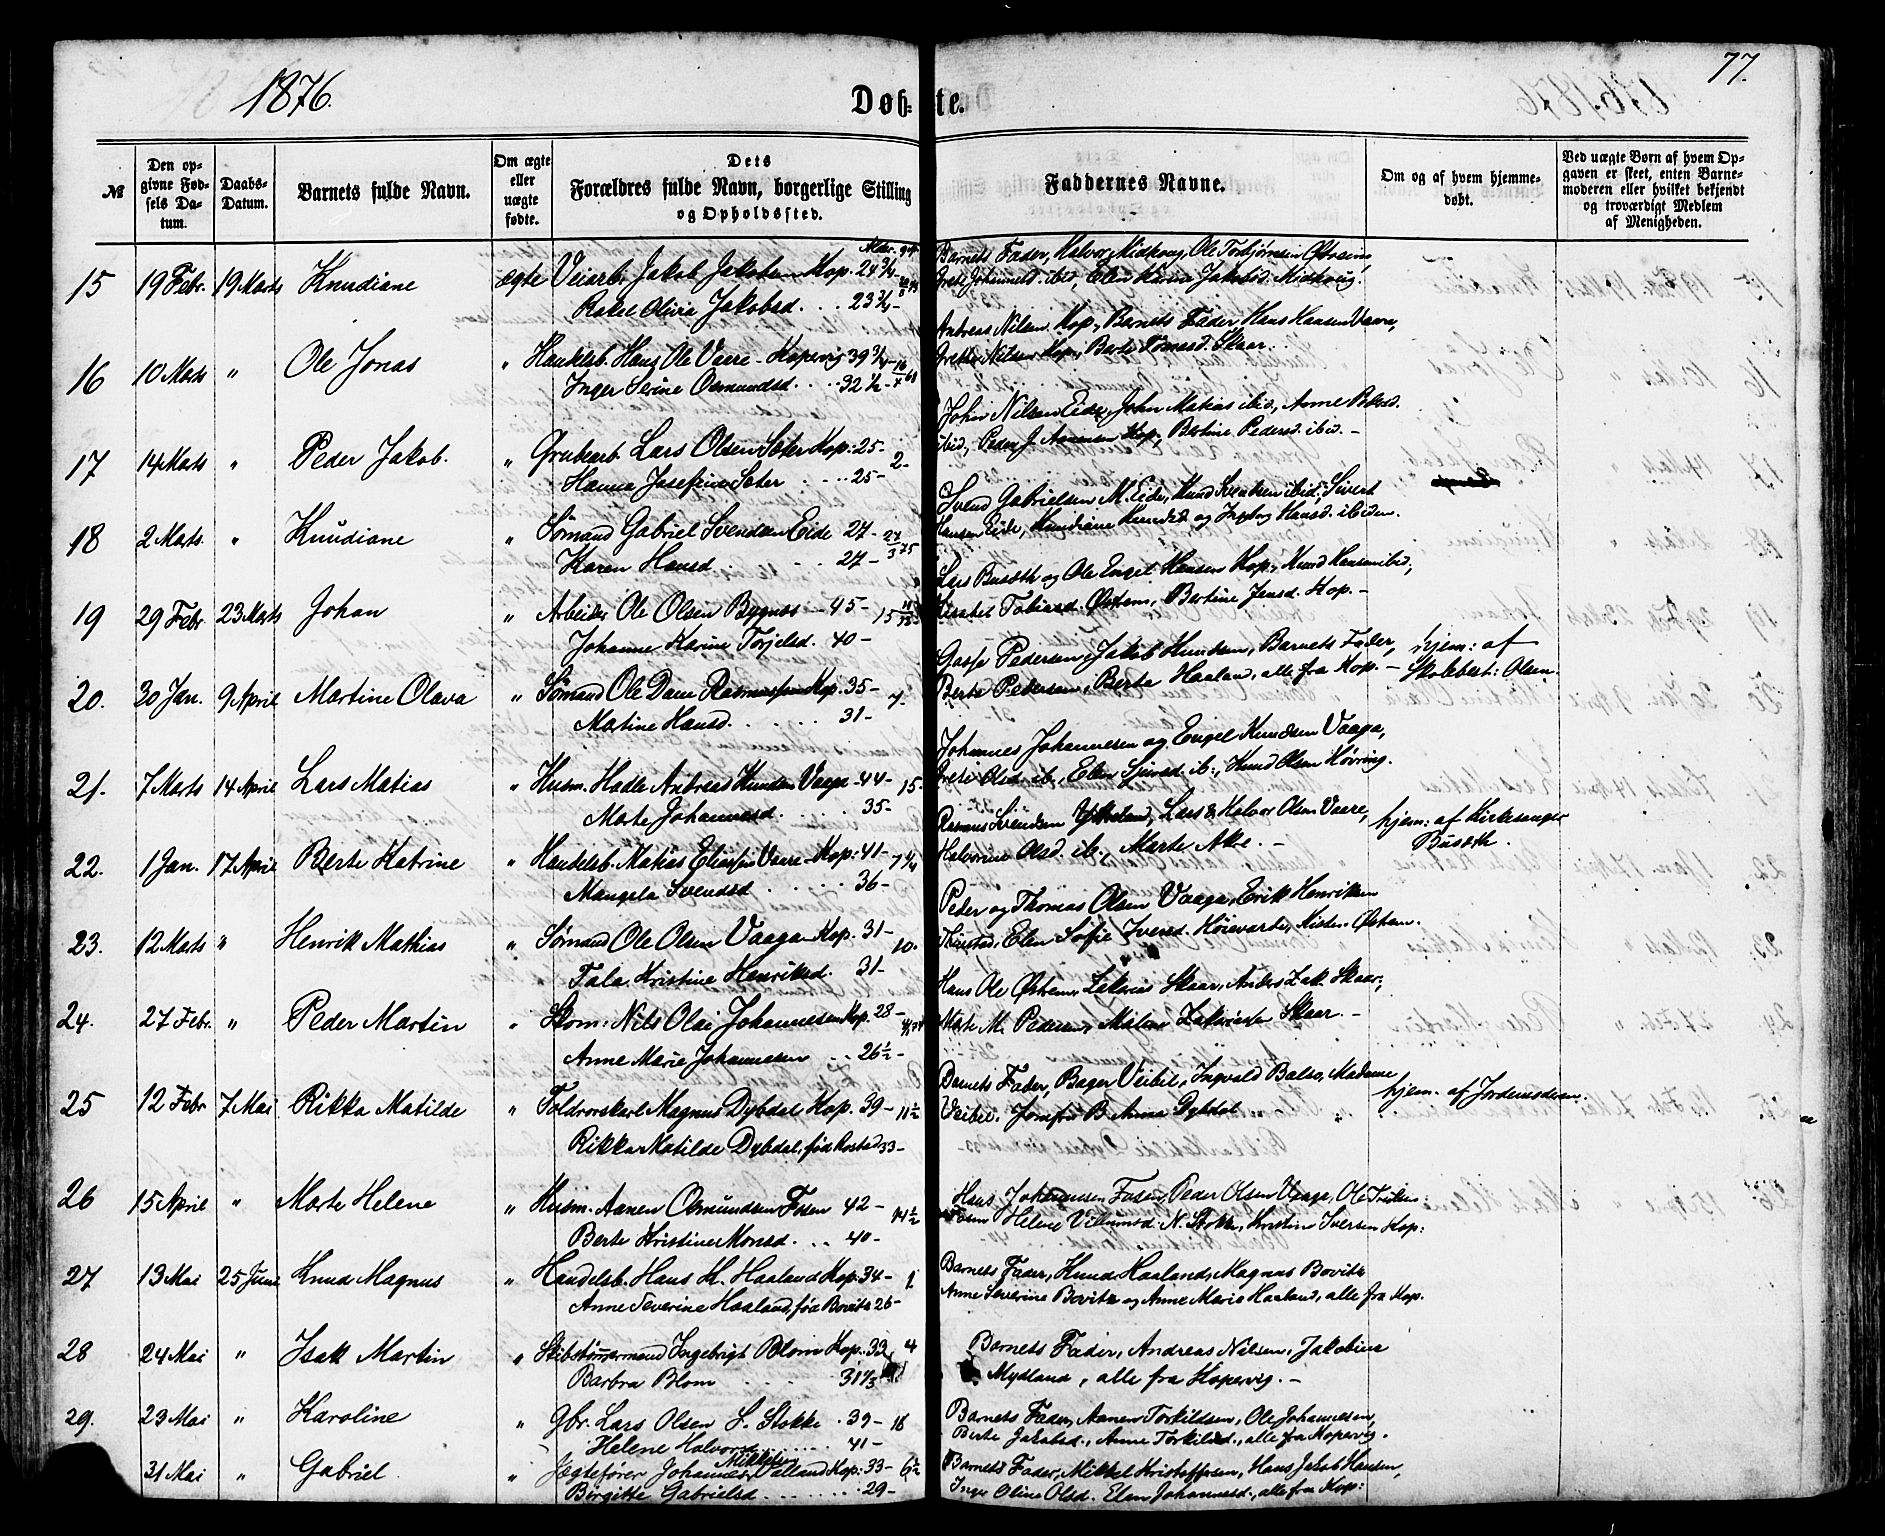 1876.
Døb-
te.
77.
№
Den op-
givne Fød-
sels Da-
tum.
Daabs-
Datum.
Barnets fulde Navn.
Om ægte
eller
uægte
fødte.
Dets
Forældres fulde Navn, borgerlige Stilling
og Opholdssted.
Faddernes Navne.
Om og af hvem hjemme-
døbt.
Ved uægte Børn af hvem Op-
gaven er skeet, enten Barne-
moderen eller hvilket bekjendt
og troværdigt Medlem
af Menigheden.
15 19 Febr. 19 Marts Knudiane ægte Veiarb. Jakob Jakobsen Kop. 24 3/4
Rakel Olivia Jakobsd. . . 23 3/4 -
Barnets Fader, Halvor Midhoug, Ole Torbjørnsen Østreim,
Grete Johannesd. ibid, Elen Karine Jakobsd. Midhoug.
16 10 Marts " Ole Jonas " Handelsb. Hans Ole Vaere - Kopervig 39 3/4 -
Inger Serine Osmundsd. . . . 32 1/2 -
Andreas Nilsen Kop., Barnets Fader, Hans Hansen Vavre,
Grethe Nilsen Kop., Berte Skaar.
17 14 Marts " Peder Jakob. " Grubearb. Lars Olsen Sæter Kop: 25 - 2 -
Hanna Josefine Sæter . . . 25 -
John Nilsen Eide, John Matias ibid., Anne
ibid, Peder J. Aanensen Kop., Bertine Pedersd. ibid. -
18 2 Marts. " Knudiane " Sømand Gabriel Svendsen Eide 27 - 27/3 75
Karen Hansd. . . . 27 -
Svend Gabrielsen M. Eide, Knud Knudsen ibid, Sivert
Hansen Eide, Knudiane Knudsd. og Ingeborg Hansd. ibidem.
19 29 Febr. 23 Marts Johan " Arbeider Ole Olsen Bygnes - 45 - 15
Johanne Karine Torjelsd. 40 -
Lars Busæth og Ole Engel Hansen Kop., Knud Hansen ibid,
Lisabet Tobiasd. Østrem, Bertine Jensd. Kop. -
20. 30 Jan. 9 April Martine Olava " Sømand Ole Dane Rasmussen Kop. 35 - 7 -
Martine Hansd. . . . 31 -
Pedersen, Jakob Knudsen, Barnets Fader,
Berte Pedersen, Berta Haaland, alle fra Kop. -
hjem: af
Skolebest: Olsen.
21. 7 Marts 14 April Lars Matias " Husm. Hadle Andreas Knudsen Vaage - 44 - 15 -
Marte Johannesd. . . . 35 -
Johannes Johannesen og Engel Knudsen Vaaga,
Grete Olsd. ib., Elen Sjursd. ib., Knud Olsen Høvring.
22. 1 Jan. 17 April Berte Katrine " Handelsb. Matias Eliassen Vaere - Kop: 41 - 7 1/4
Mangela Svendsd. . . . 36 -
Rasmus Svendsen, Lars & Halvor Olsen Vaere,
Halvorine Olsd. ib., Marte Ake. -
hjem: af Kirkesanger
Busæth.
23. 12 Marts " Henrik Mathias " Sømand Ole Olsen Vaaga - Kop. 31 - 10.
Tala Kristine Henriksd. 31 -
Peder og Thomas Olsen Vaaga, Erik Henriksen
Elen Sofie Iversd. Høievarde, Østrem.
24. 27 Febr. " Peder Martin " Skom: Nils Olai Johannesen Kop. 28 -
Anne Marie Johannesen . . . 26 1/2 -
Hans Ole Østrem, Zakrias Skaar, Anders Zak. Skaar,
Marte M. Pedersen, Malene Zakriasen Skaar. -
25 12 Febr 7 Mai Rikka Matilde " Toldrorskarl Magnus Dybdal Kop. 39 - 11 1/2
Rikka Matilde Dybdal, fød Rostad 33 -
Barnets Fader, Bager Veibel, Ingvald Balso, Madame
Veibel, Jomfru B. Anna Dybdal
hjem. af Jordemoderen.
26 15 April " Marte Helene " Husm. Aanen Osmundsen Fosen 42 - 14 1/2
Berte Kristine Monsd. . . 40 -
Hans Johannesen Fosen, Peder Olsen Vaage, Ole
Fosen Helene N. Stokke, Kristine Iversen Kop:
27 13 Mai 25 Juni Knud Magnus " Handelsb. Hans K. Haaland Kop. 34 - 1
Anne Severine Haaland, fød Bovitz 26 -
Barnets Fader, Knud Haaland, Magnus Bovitz
Anne Severine Bovitz og Anne Marie Haaland, alle fra Kop.
28 24 Mai " Isak Martin " Skibstømmermand Ingebrigt Blom Kop. 33 4
Barbra Blom . . . 31 1/3
Barnets Fader, Andreas Nilsen, Jakobine
Mydland, alle fra Kopervig. -
29. 23 Mai " Karoline " Gbr. Lars Olsen S. Stokke . 39 - 16
Helene Halvorsd. . . . 41 -
Barnets Fader, Aanen Torkildsen, Ole Johannesen,
Berte Jakobsd., Anne Torkildsd., alle fra Kopervig.
31 Mai " Gabriel " Jægtefører Johannes Mikkelsen Valland Kop: 33 - 6 1/2
Birgitte Gabrielsd. . . . 29 -
Barnets Fader, Mikkel Kristoffersen, Hans Jakob Hansen,
Inger Oline Olsd. Elen Johannesd., alle fra Kop: